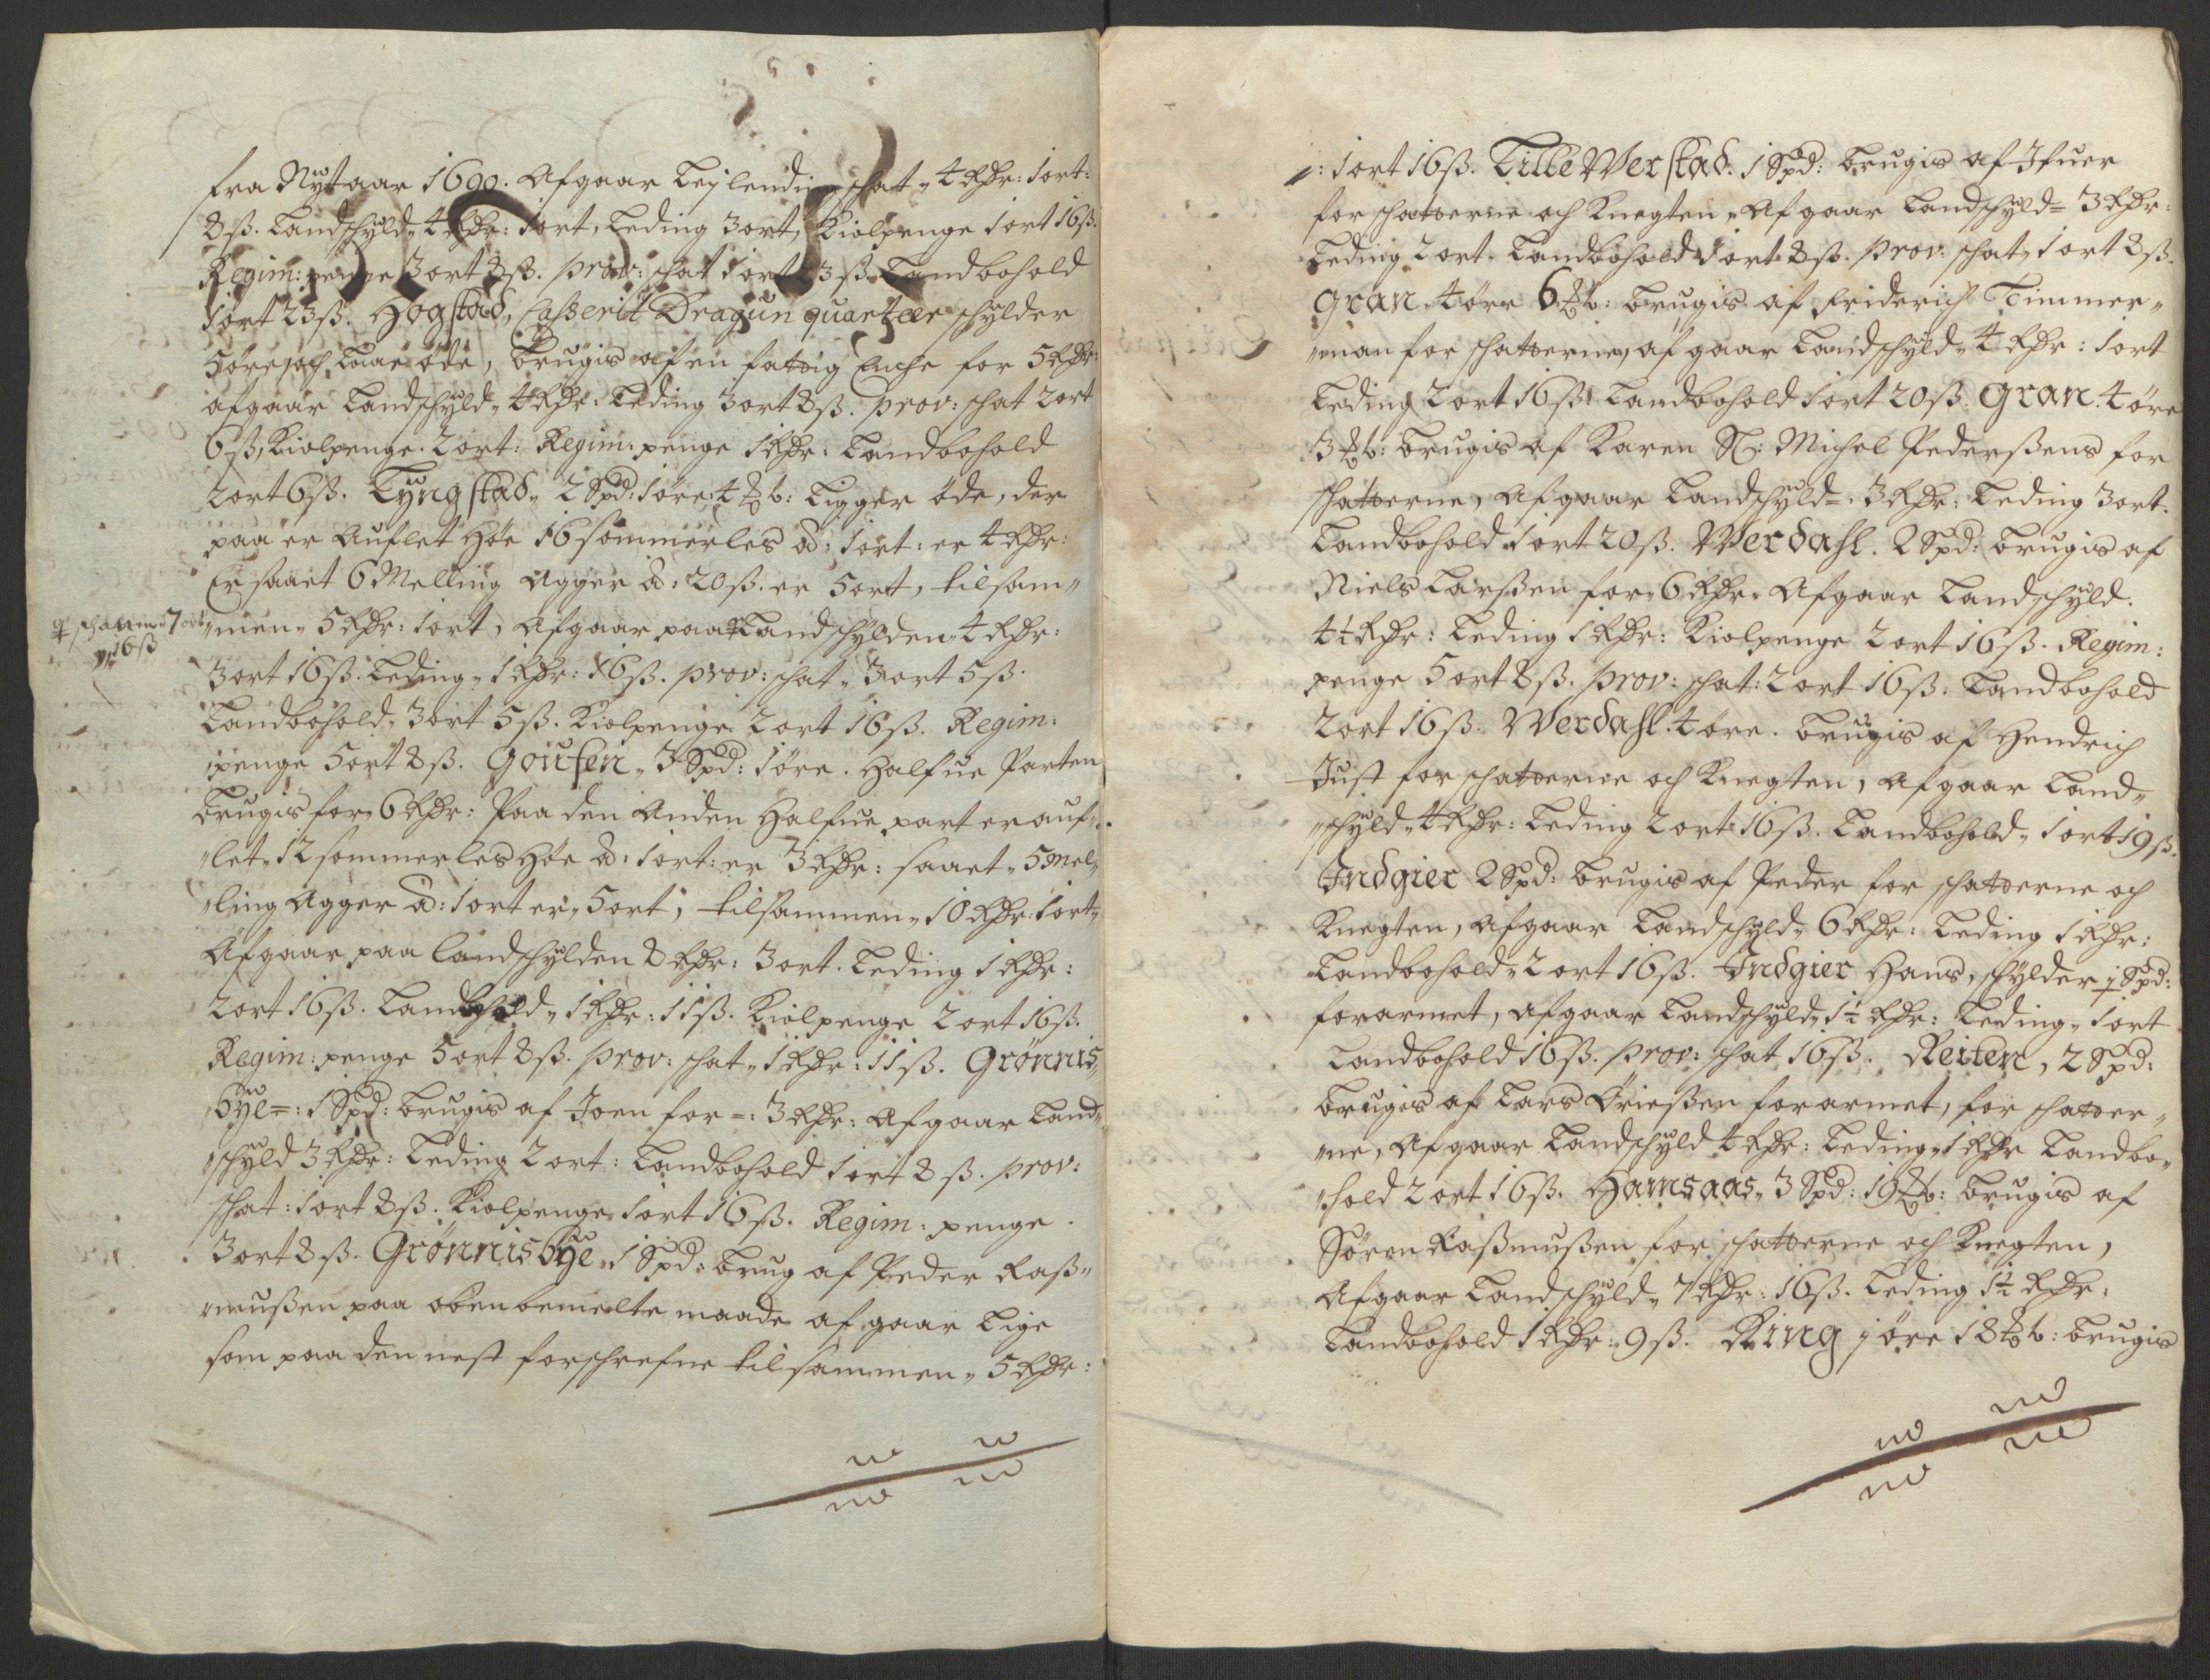 fra Nÿtaar 1690. Afgaar Leÿlending schat „ 4 Rdr: 1 ort:
8 ß. Landschÿld „ 4 Rdr: 1 ort, Leding 3 ort, Kiolpenge 1 ort 16 ß.
Regim: penge 3 ort 8 ß. prov: schat 1 ort 23 ß. Landbohold
1 ort 23 ß. Hogstad, Casserit Dragun quarteer schÿlder
5 øre och Laae øde, brugis af en fattig Enche for 5 Rdr:
afgaar Landschÿld „ 4 Rdr: Leding 3 ort 8 ß. prov: schat 2 ort
6 ß, Kiolpenge. 2 ort: Regim: penge 1 Rdr: Landbohold
2 ort 6 ß. Lÿngstad „ 2 Spd: 1 øre: 4 ℔: Ligger øde, der
paa er Auflet Høe 16 sommerles â: 1 ort: er 4 Rdr:
Er saaet 6 Melling Agger â: 20 ß. er 5 ort, tilsam„
schatterne 7 ort
16 ß
„men „ 5 Rdr: 1 ort, Afgaar paa Landschÿlden „ 4 Rdr:
3 ort 16 ß. Leding „ 1 Rdr: 16 ß. prov: schat „ 3 ort 5 ß.
Landbohold „ 3 ort 5 ß. Kiolpenge 2 ort 16 ß. Regim:
penge 5 ort 8 ß. Gousen „ 3 Spd: 1 øre. Halfue Parten
brugis for „ 6 Rdr: Paa den Anden Halfue part er auf„
„let „ 12 sommerles Høe â: 1 ort: er 3 Rdr: saaet „ 5 Mel„
„ling Agger â: 1 ort er „ 5 ort, tilsammen „ 10 Rdr: 1 ort „
Afgaar paa Landschÿlden 8 Rdr: 3 ort. Leding 1 Rdr:
2 ort 16 ß. Landbohold „ 1 Rdr: 11 ß. Kiolpenge 2 ort 16 ß.
Regim: penge 5 ort 8 ß. prov: schat „ 1 Rdr: 11 ß. Grønnis„
bÿe =: 1 Spd: brugis af Joen for =: 3 Rdr: Afgaar Land„
„schÿld 3 Rdr: Leding 2 ort: Landbohold 1 ort 8 ß. prov:
schat: 1 ort 8 ß. Kiolpenge 1 ort 16 ß. Regim: penge
3 ort 8 ß. Grønnisbÿe „ 1 Spd: brug af Peder Raß„
„mußen paa obenbemelte maade afgaar Lige
som paa den nest forschrefne tilsammen „ 5 Rdr:
: 1 ort 16 ß. Lille Werstad. 1 Spd: brugis af Ifuer
for schatterne och Knegten „ Afgaar Landschÿld = 3 Rdr:
Leding 2 ort „ Landbohold 1 ort 8 ß. prov: schat „ 1 ort 8 ß.
Gran. 4 øre 6 ℔: brugis af Friderich Timmer„
„man for schatterne, afgaar Landschÿld „ 4 Rdr: 1 ort
Leding 2 ort 16 ß: Landbohold 1 ort 20 ß. Gran. 4 øre
3 ℔: brugis af Karen Sl: Michel Pederßens for
schatterne, Afgaar Landschÿld =: 3 Rdr: Leding 3 ort.
Landbohold 1 ort 20 ß. Werdahl. 2 Spd: brugis af
Niels Larßen for „ 6 Rdr. Afgaar Landschÿld.
4½ Rdr: Leding 1 Rdr: Kiolpenge 2 ort 16 ß. Regim:
penge 5 ort 8 ß. prov: schat: 2 ort 16 ß. Landbohold
2 ort 16 ß. Werdahl. 4 øre. brugis af Hendrich
Just for schatterne och Knegten, Afgaar Land„
„schÿld „ 4 Rdr: Leding 2 ort 16 ß. Landbohold „ 1 ort 19 ß.
Indgier 2 Spd: brugis af Peder for schatterne och
Knegten, Afgaar Landschÿld „ 6 Rdr: Leding 1 Rdr:
Landbohold „ 2 ort 16 ß. Indgier Hans, schÿlder ½ Spd:
forarmet, Afgaar Landschÿld „ 1½ Rdr: Leding „ 1 ort
Landbohold 16 ß. prov: schat 16 ß. Reiten, 2 Spd:
brugis af Lars Ørießen forarmet, for schatter„
„ne, Afgaar Landschÿld 4 Rdr: Leding „ 1 Rdr Landbo„
„hold 2 ort 16 ß. Hamsaas „ 3 Spd: 19 ℔: brugis af
Søren Raßmußen for schatterne och Knegten,
Afgaar Landschÿld „ 7 Rdr: 16 ß. Leding 1½ Rdr:
Landbohold 1 Rdr: 9 ß. Ring 1 øre 18 ℔: brugis